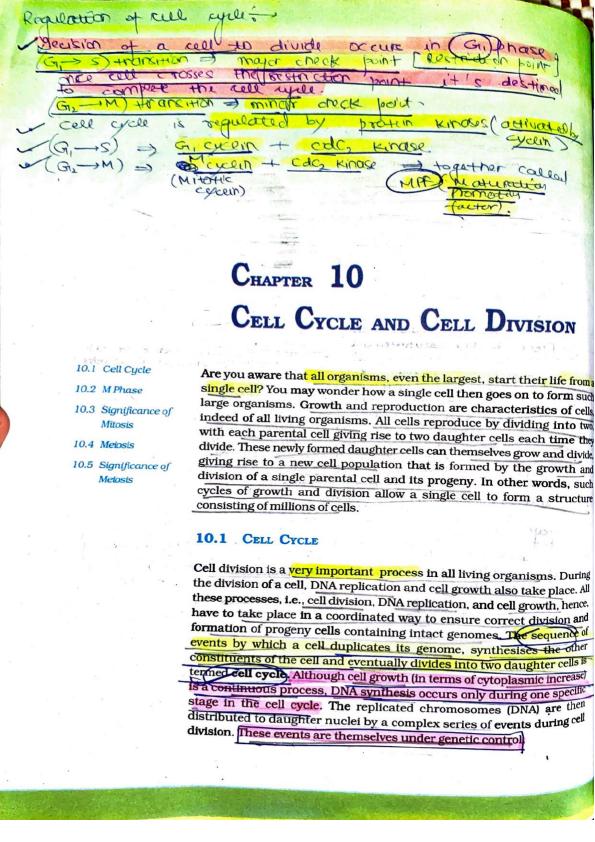 Regulation of cell cycle :-
✓ Decision of a cell to divide occurs in G1 phase
(G1 → S) transition ⇒ major check point [Restriction point]
once cell crosses the restriction point it's destined
to complete the cell cycle.
(G2 → M) transition ⇒ minor check point.
✓ cell cycle is regulated by protein kinases (activated by cyclin)
✓ (G1 → S) ⇒ G1 cyclin + cdc2 kinase.
✓ (G2 → M) ⇒ M cyclin + cdc2 kinase ⇒ together called
(Mitotic cyclin)
MPF (Maturation
Promoting
factor).
CHAPTER 10
CELL CYCLE AND CELL DIVISION
10.1 Cell Cycle
10.2 M Phase
10.3 Significance of
Mitosis
10.4 Meiosis
10.5 Significance of
Meiosis
Are you aware that all organisms, even the largest, start their life from a
single cell? You may wonder how a single cell then goes on to form such
large organisms. Growth and reproduction are characteristics of cells,
indeed of all living organisms. All cells reproduce by dividing into two,
with each parental cell giving rise to two daughter cells each time they
divide. These newly formed daughter cells can themselves grow and divide,
giving rise to a new cell population that is formed by the growth and
division of a single parental cell and its progeny. In other words, such
cycles of growth and division allow a single cell to form a structure
consisting of millions of cells.
10.1 CELL CYCLE
Cell division is a very important process in all living organisms. During
the division of a cell, DNA replication and cell growth also take place. All
these processes, i.e., cell division, DNA replication, and cell growth, hence,
have to take place in a coordinated way to ensure correct division and
formation of progeny cells containing intact genomes. The sequence of
events by which a cell duplicates its genome, synthesises the other
constituents of the cell and eventually divides into two daughter cells is
termed cell cycle. Although cell growth (in terms of cytoplasmic increase)
is a continuous process, DNA synthesis occurs only during one specific
stage in the cell cycle. The replicated chromosomes (DNA) are then
distributed to daughter nuclei by a complex series of events during cell
division. These events are themselves under genetic control.